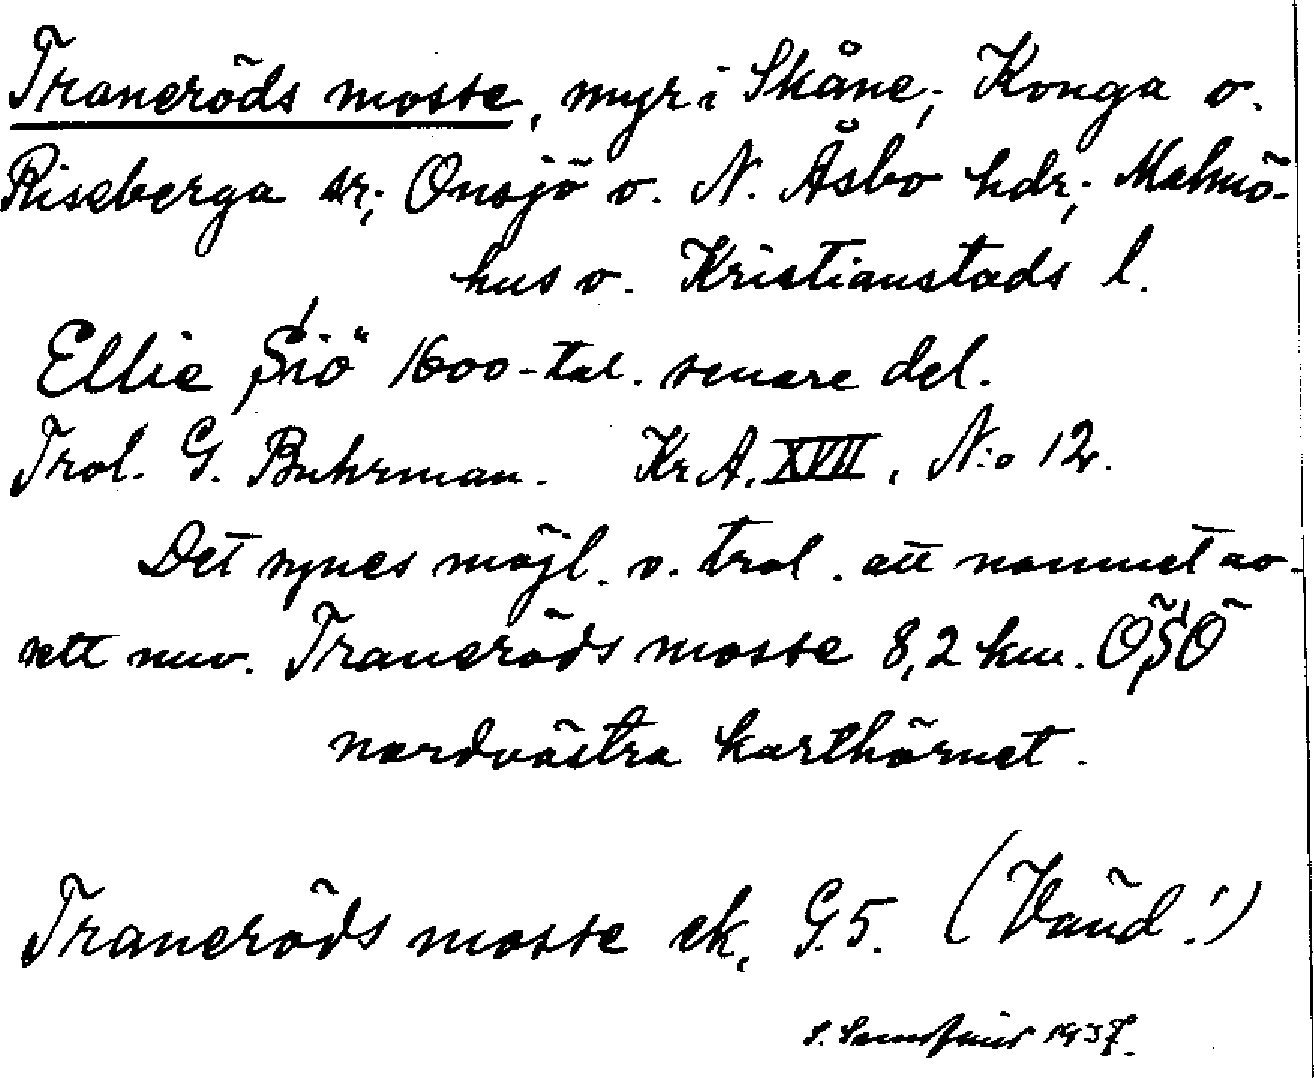 Traneröds mosse, myr i Skåne; Konga o.
Riseberga sr; Onsjö o. N. Åsbo hdr; Malmö-
hus o. Kristianstads l.
Ellie Siö 1600-tal. senare del.
Trol. G. Buhrman. Kr. A. XVII, N:o 12.
Det synes möjl. o. trol. att namnet av-
sett nuv. Traneröds mosse 8,2 km. OSO
nordvästra karthörnet.
Traneröds mosse ek. G. 5. (Vänd!)
S. 1937.